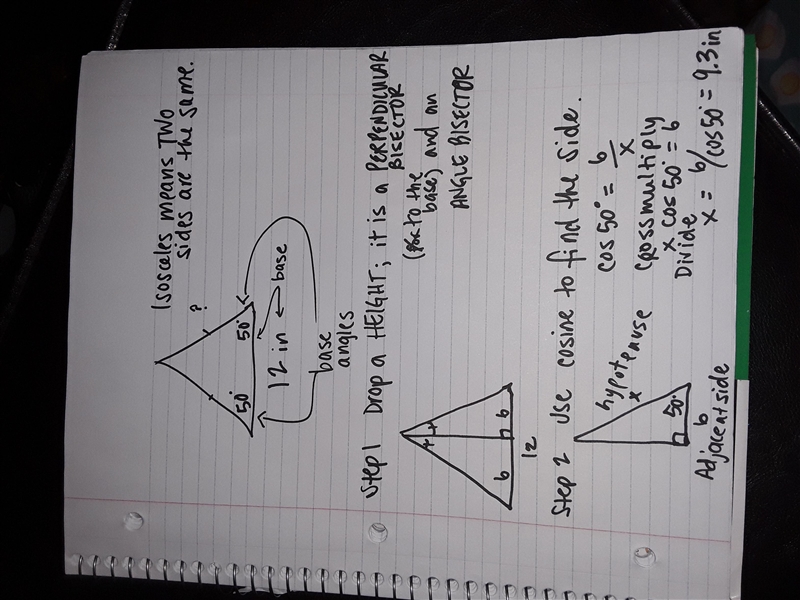 Isosceles means TWO
sides are the same.
?
50° 50°
12 in ← base
base
angles
Step 1 Drop a HEIGHT; it is a PERPENDICULAR
BISECTOR
(to the
base) and an
ANGLE BISECTOR
6 6
12
Step 2 Use cosine to find the side.
hypotenuse
x
50°
6
Adjacent side
cos 50° = 6/x
Cross multiply
x cos 50° = 6
Divide
x = 6/cos 50° = 9.3 in